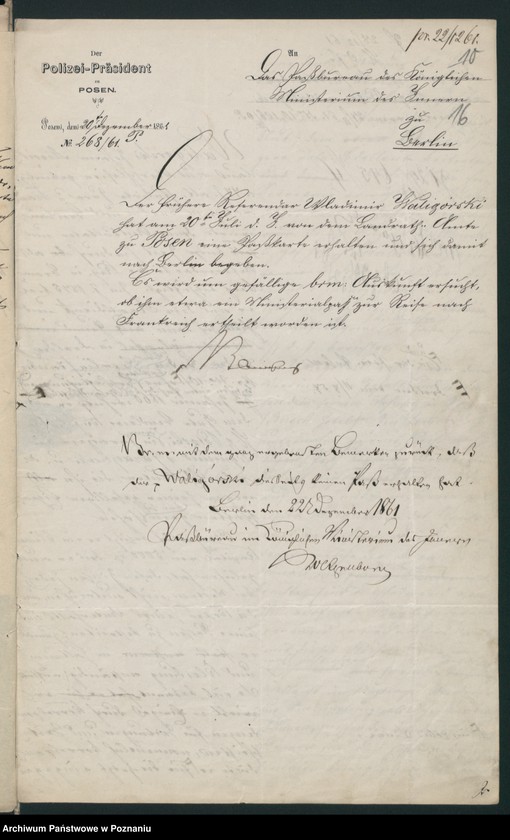 pr. 22/12 61.
10
16
Der
Polizei-Präsident
zu
POSEN.
Posen, den 20 Dezember 1861
№ 268/61. P.
An
Das Paßbureau des Königlichen
Ministerium des Innern
zu
Berlin
Der frühere Referendar Wladimir Waligórski
hat am 20ten Juli d. J. von dem Landraths-Amte
zu Posen eine Paßkarte erhalten und sich damit
nach Berlin begeben.
Es wird um gefällige brm: Auskunft ersucht,
ob ihm etwa ein Ministerialpaß zur Reise nach
Frankreich ertheilt worden ist.
mit dem ganz ergebensten Bemerken zurück, daß
der p Waligórski diesseits keinen Paß erhalten hat.
Berlin den 22 Dezember 1861
Paßbüreau im Königlichen Ministerium des Innern
Archiwum Państwowe w Poznaniu